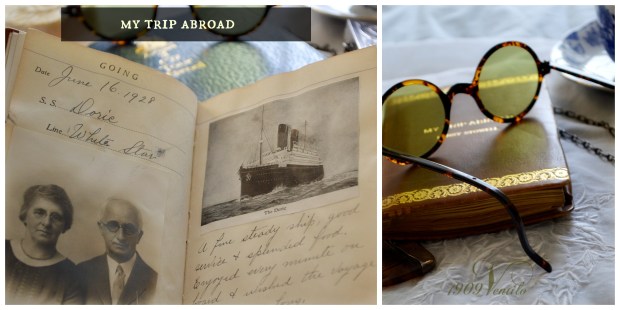 MY TRIP ABROAD
GOING
Date June 16, 1928
S. S. Doric
Line White Star
The Doric
A fine steady ship, good
service & splendid food.
Enjoyed every minute on
and & wished the voyage
MY
1909